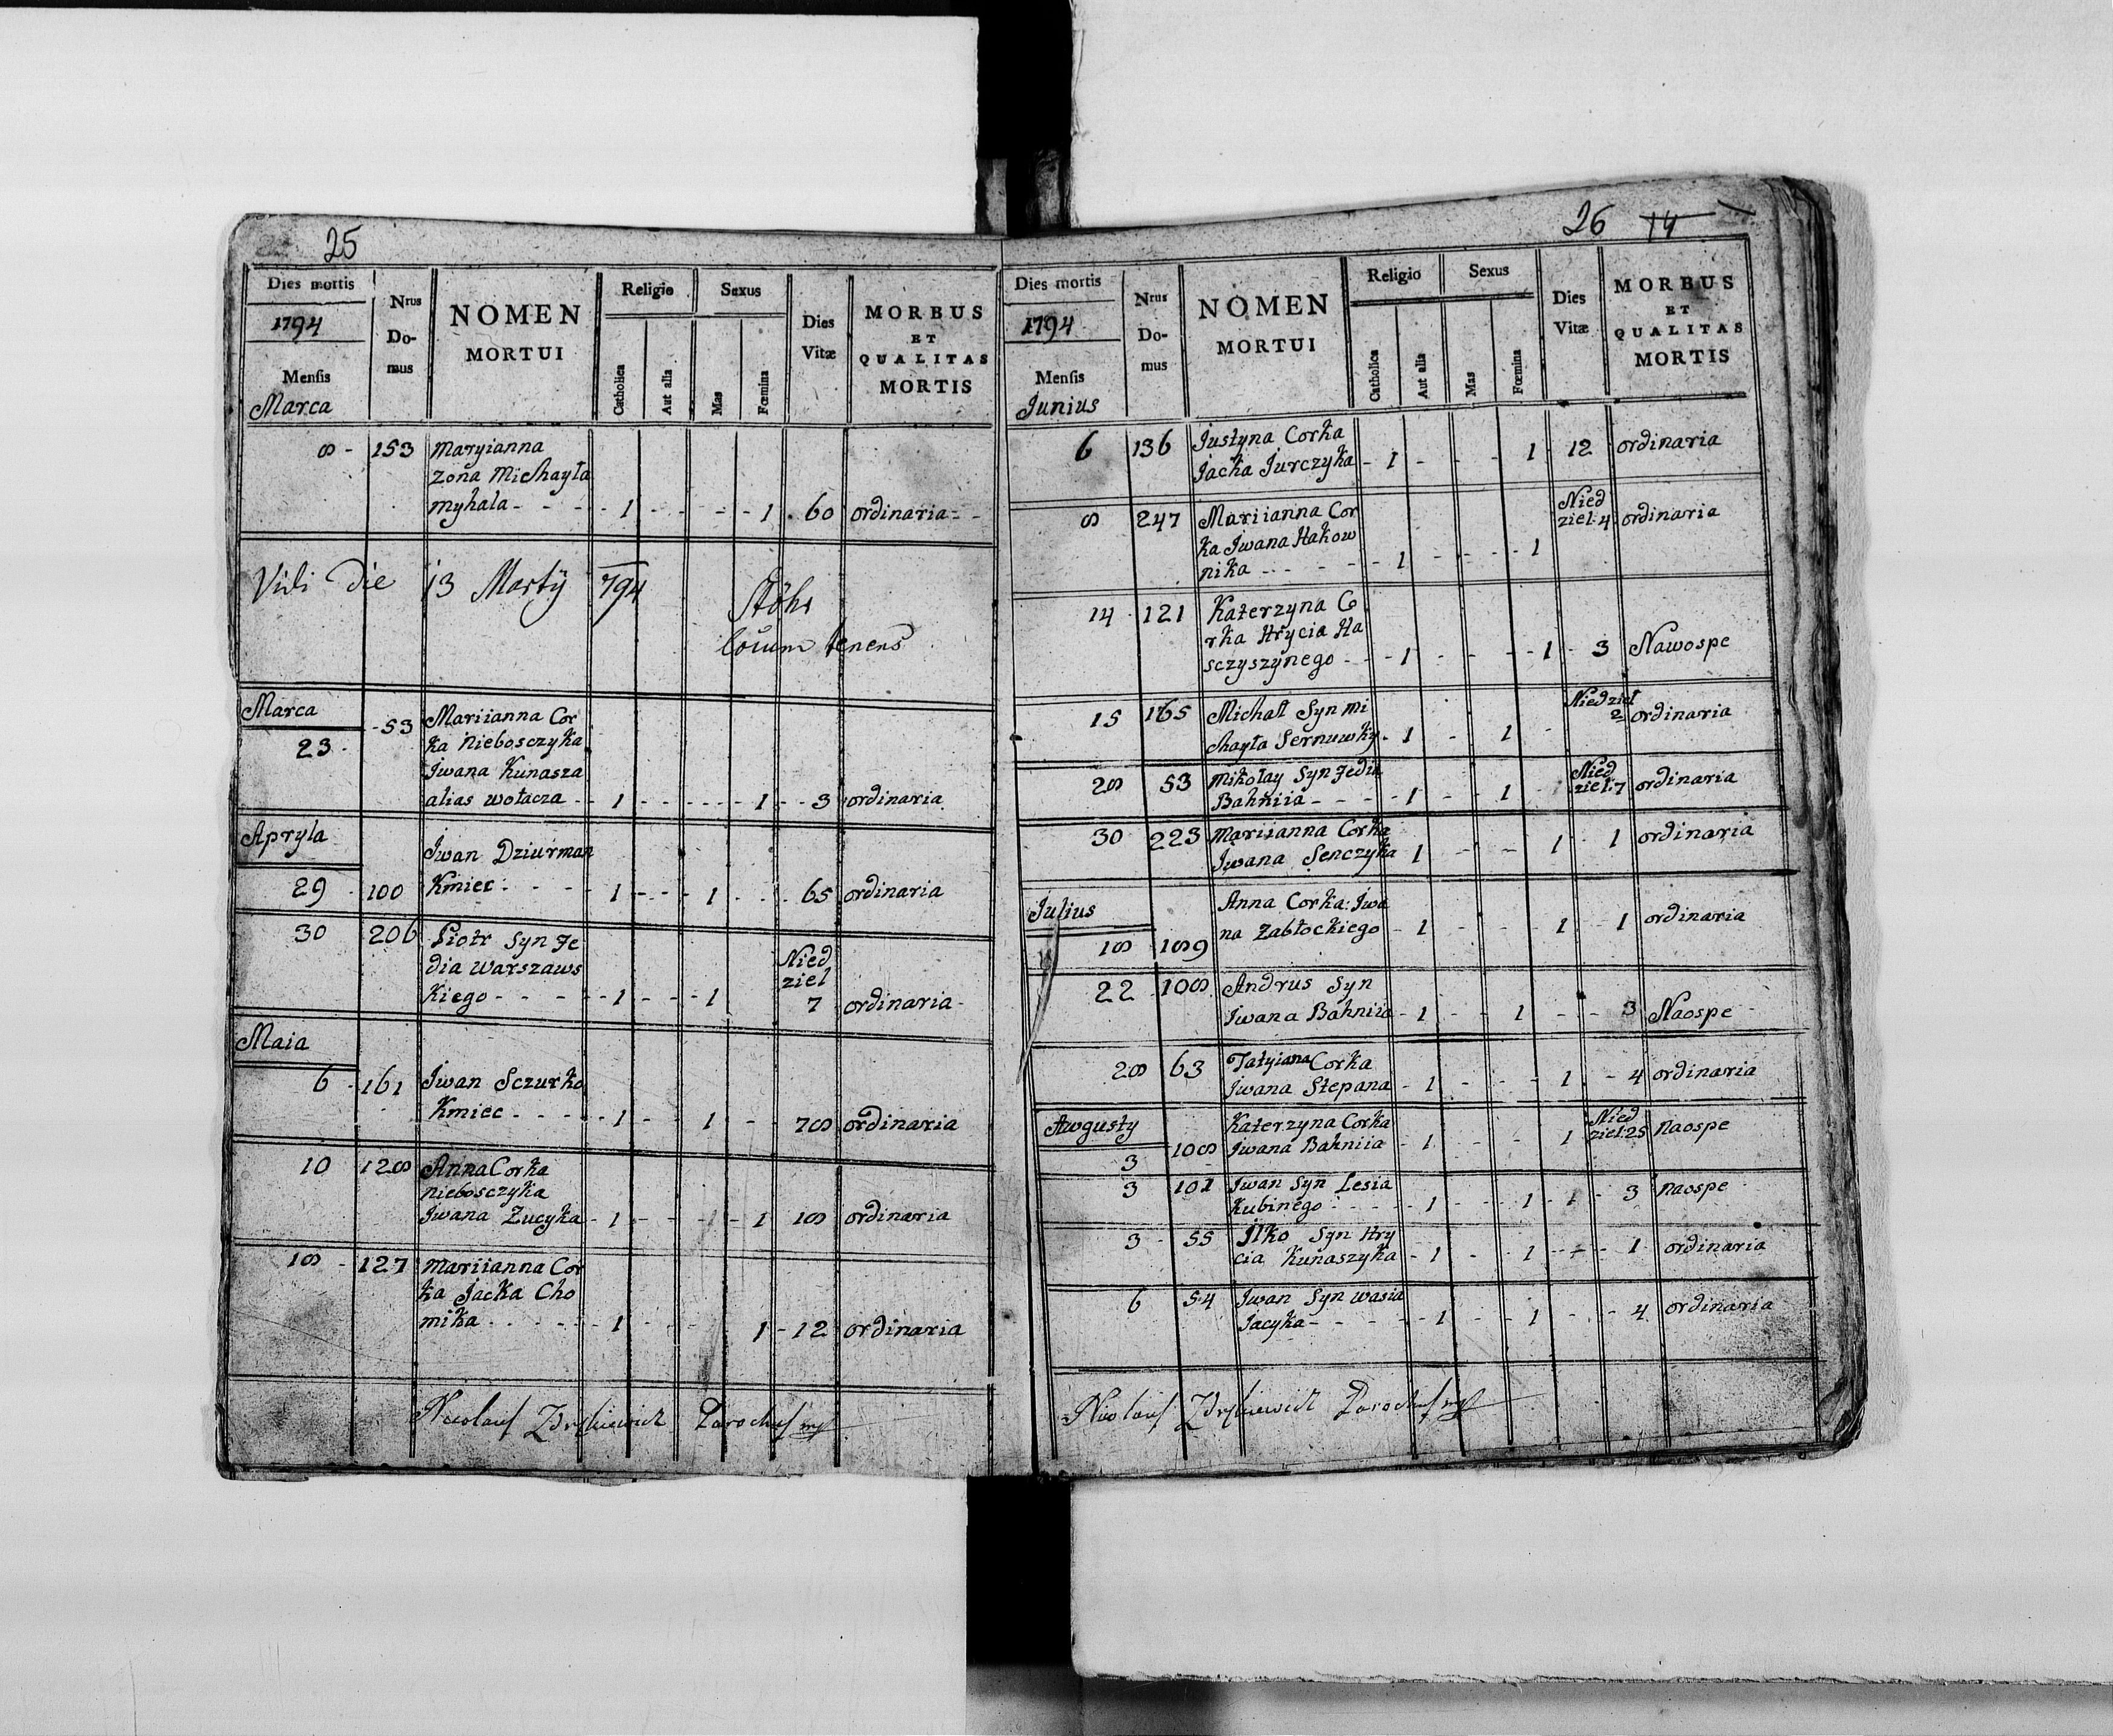 25
Dies mortis
1794
Mensis
Marca
Nrus Do-mus
NOMEN
MORTUI
Religio
Catholica
Aut alia
Sexus
Mas
Fœmina
Dies Vitæ
MORBUS
ET
QUALITAS
MORTIS
8 - 153 Maryianna
zona Michayła
myhala - - - - 1 - - - - 1 . 60 ordinaria - -
Vidi Die 13 Martÿ 794
Stöhr
locum tenens
Marca
23 - 53 Mariianna Cor
ka Niebosczyka
Jwana Kunasza
alias wołacza - - 1 - - - - - 1 - - 3 ordinaria
Apryla
Jwan Dziurman
29 - 100 Kmiec - - - - 1 - - - 1 - - - 65 ordinaria
30 206 Piotr Syn Fe
dia Warszaws
Nied
ziel
Kiego - - - - - 1 - - - 1 7 ordinaria -
Maia
6 - 161 Jwan Sczurko
Kmiec - - - - 1 - - 1 - - 78 ordinaria
10 128 Anna Corka
niebosczyka
Jwana Zucyka - 1 - - - - 1 18 ordinaria
18 - 127 Mariianna Cor
ka Jacka Cho
mika - - - - - 1 - - - 1 - 12 ordinaria
Nicolaus Parochus mp
26 14
Dies mortis
1794
Mensis
Junius
Nrus Do-mus
NOMEN
MORTUI
Religio
Catholica
Aut alia
Sexus
Mas
Fœmina
Dies Vitæ
MORBUS
ET
QUALITAS
MORTIS
6 136 Justyna Corka
Jacka Jurczyka - 1 - - - - 1 - 12 ordinaria
8 247 Mariianna Cor
Nied
ziel: 4 ordinaria
ka Jwana Hakow
nika - - - - - 1 - - - - 1
14 - 121 Katerzyna Co
rka Hrycia Ha
sczyszynego - - - 1 - - - - 1 - 3 Nawospe
15 165 Michał Syn Mi
Niedziel
2 ordinaria
chayła Sernuwky - 1 - 1 -
28 53 Mikołay Syn Fedia
Nied
ziel: 7 ordinaria
Bahniia - - - - 1 - - 1
30 223 Mariianna Corka
Jwana Senczyka 1 - - 1 - 1 ordinaria
Julius
Anna Corka Jwa
na Zabłockiego - 1 - - - 1 - 1 ordinaria
18 189
22 108 Andrus Syn
Jwana Bahniia - 1 - - 1 - - 3 Naospe -
28 63 Tatyiana Corka
Jwana Stepana - 1 - - - 1 - 4 ordinaria
Awgusty
3 108 Katerzyna Corka
Jwana Bahniia - 1 - - - 1
Nied
ziel: 25 Naospe
3 101 Jwan Syn Lesia
Kubinego - - - - 1 - - 1 - 1 - 3 Naospe
3 - 55 Ilko Syn Hry
cia Kunaszyka - 1 - - 1 - - - 1 ordinaria
6 54 Jwan Syn Wasia
Jacyka - - - - - 1 - - 1 - - 4 ordinaria
Nicolaus Parochus mp